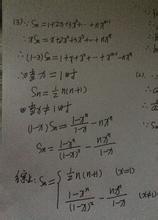 (3) ∵ Sn = 1+2x+3x²+…+nxⁿ⁻¹
∴ xSn = x+2x²+3x³+…+nxⁿ
∴ (1-x)Sn = 1+x+x²+…+xⁿ⁻¹-nxⁿ
∴当x=1时
Sn = ½n(n+1)
当x≠1时
(1-x)Sn = (1-xⁿ)/(1-x) - nxⁿ
Sn = (1-xⁿ)/(1-x)² - nxⁿ/(1-x)
综上: Sn = { ½n(n+1) (x=1)
(1-xⁿ)/(1-x)² - nxⁿ/(1-x) (x≠1)
(2)